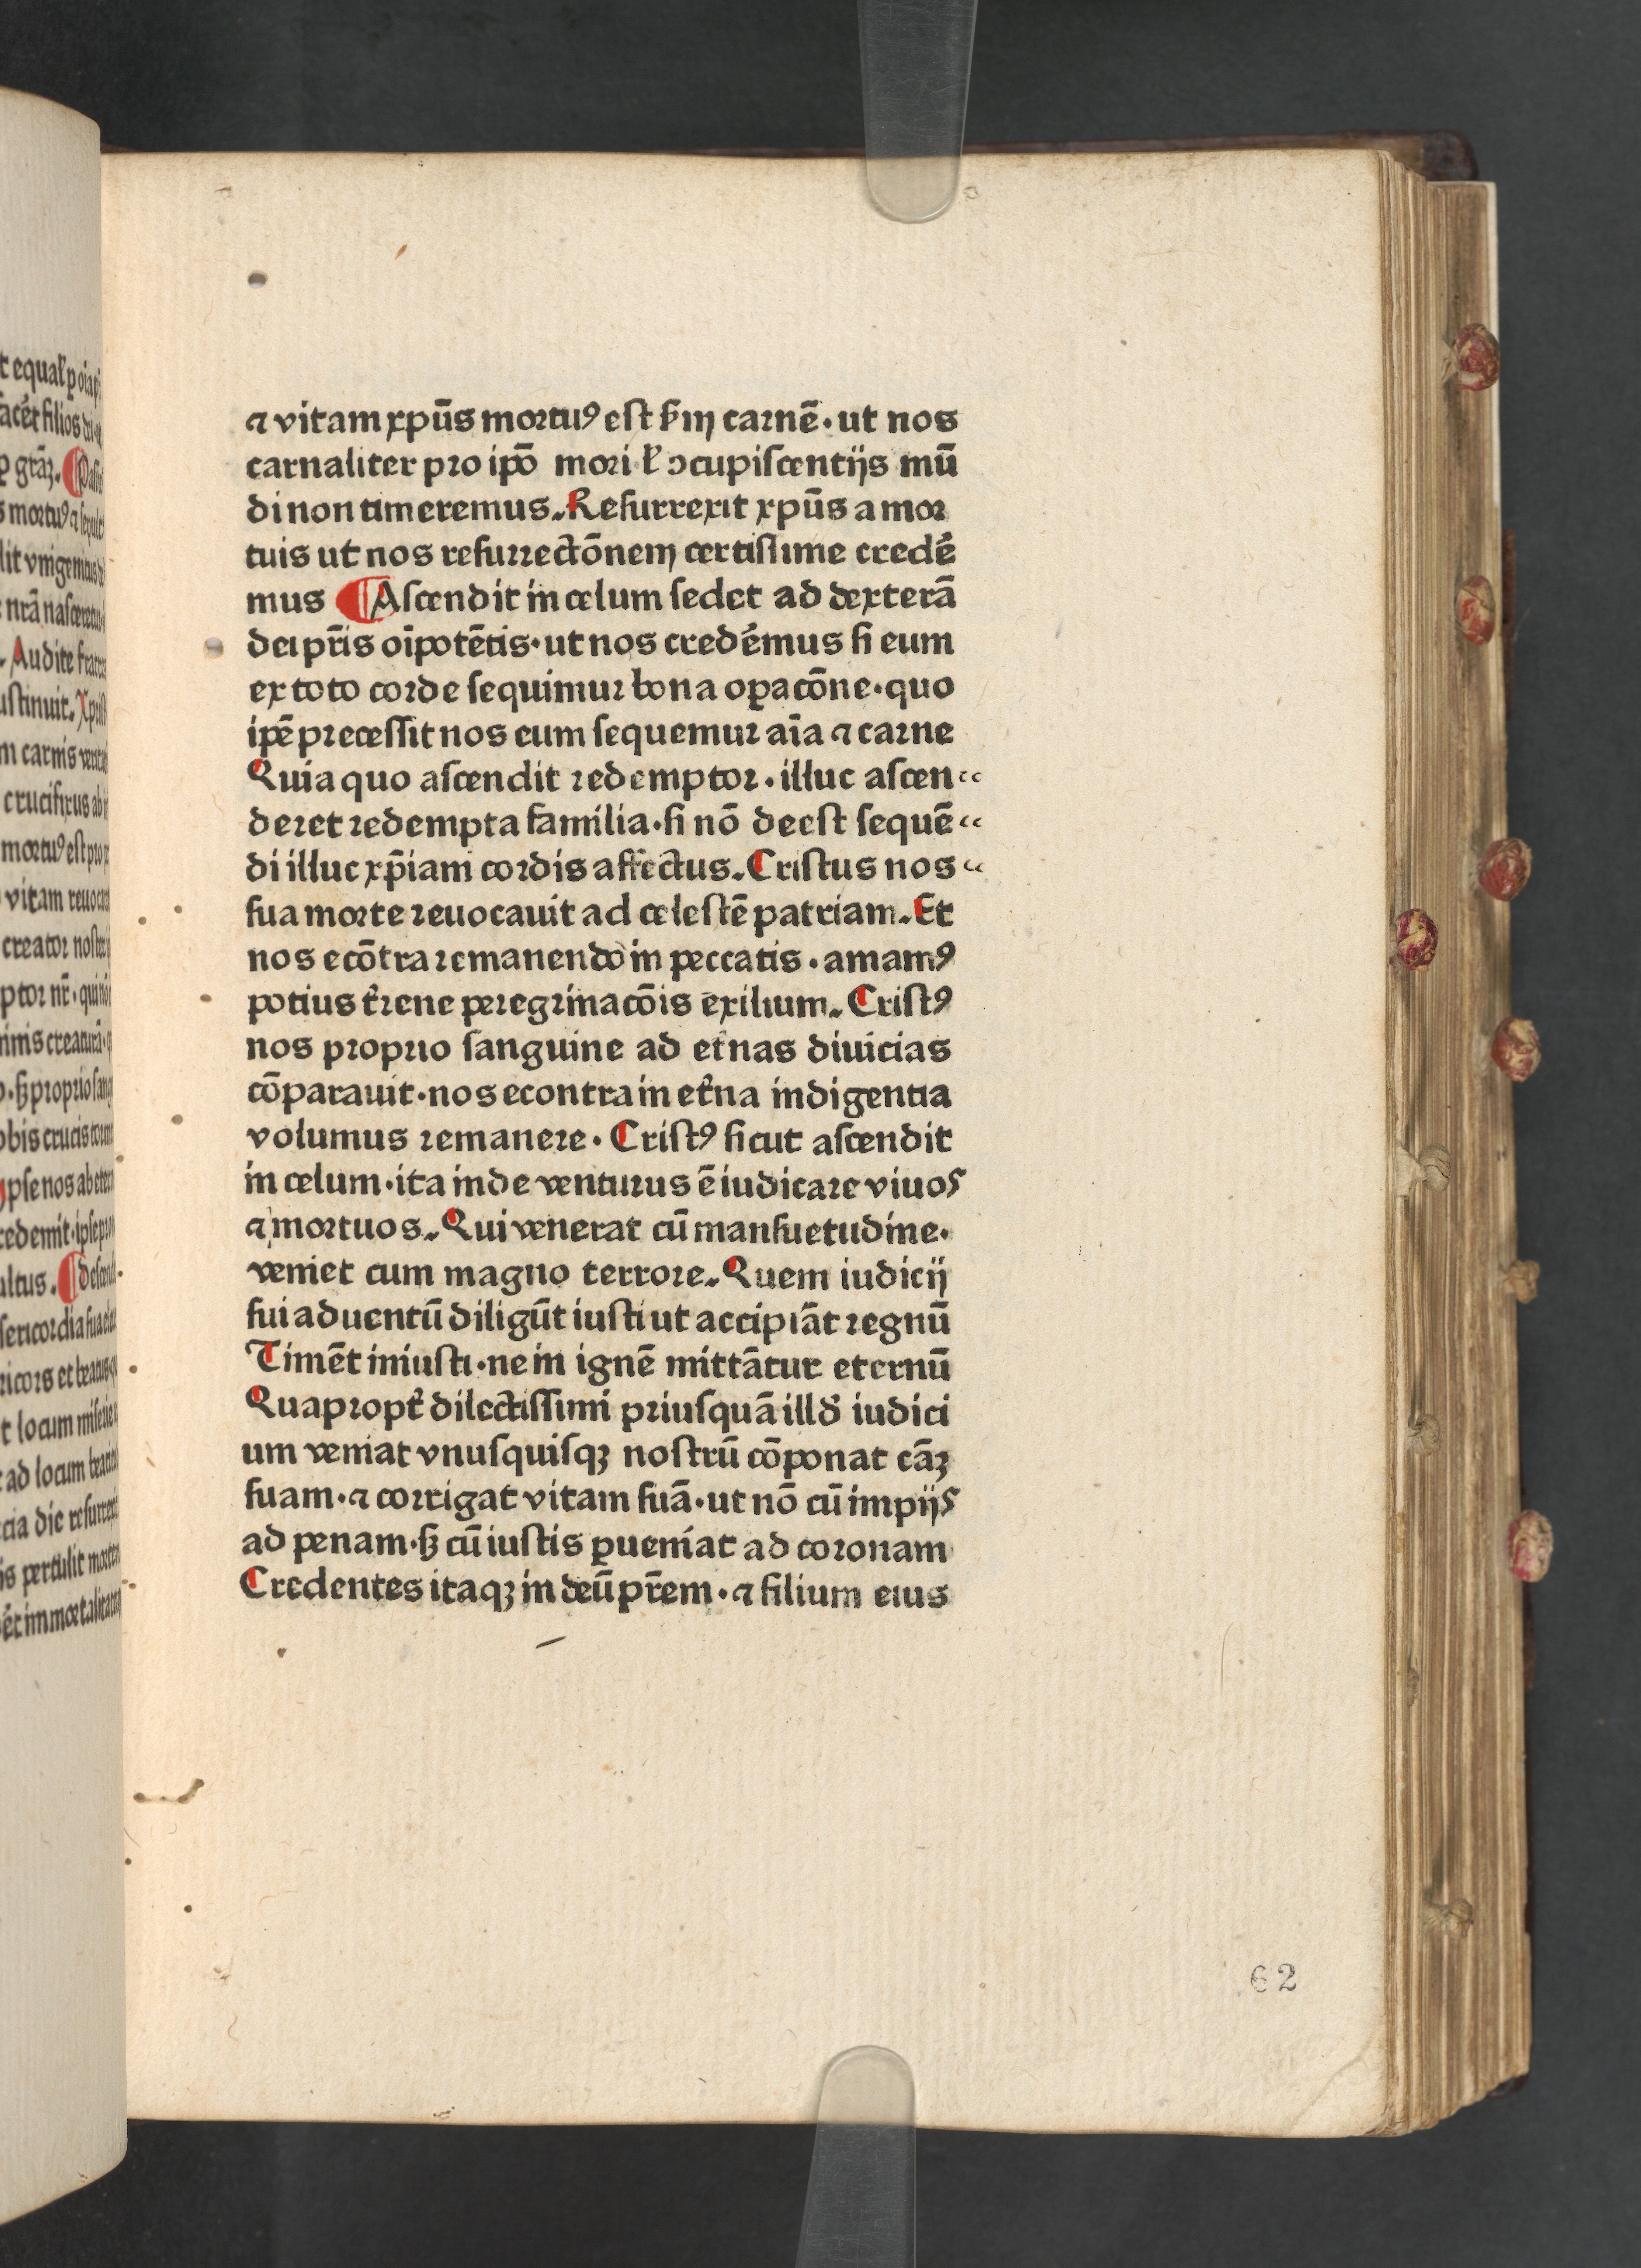 ⁊ vitam xpūs mortuꝰ est ẜm carnē · ut nos
carnaliter pro ipō mori ł ↄcupiscentijs mū
di non timeremus. Resurrexit xpūs a mor
tuis ut nos resurrectōnem certissime credē
mus ¶ Ascendit in celum sedet ad dexterā
dei pr̄is oīpotētis · ut nos credēmus si eum
ex toto corde sequimur bona oꝑacōne · quo
ipē precessit nos eum sequemur aīa ⁊ carne
Quia quo ascendit redemptor · illuc ascen
deret redempta familia · si nō deest sequē
di illuc xp̄iam cordis affectus. Cristus nos
sua morte reuocauit ad celestē patriam. Et
nos ecōtra remanendo in peccatis · amamꝰ
potius t̉rene peregrinacōis exilium. Cristꝰ
nos proprio sanguine ad et̉nas diuicias
cōparauit · nos econtra in et̉na indigentia
volumus remanere · Cristꝰ sicut ascendit
in celum · ita inde venturus ē iudicare viuos
⁊ mortuos. Qui venerat cū mansuetudine ·
veniet cum magno terrore. Quem iudicij
sui aduentū diligūt iusti ut accipiāt regnū
Timēt iniusti · ne in ignē mittātur eternū
Quapropt̉ dilectissimi priusquā illđ iudici
um veniat vnusquisqꝫ nostrū cōponat cāꝫ
suam · ⁊ corrigat vitam suā · ut nō cū impijs
ad penam · sꝫ cū iustis ꝑueniat ad coronam
Credentes itaqꝫ in deū pr̄em · ⁊ filium eius
62